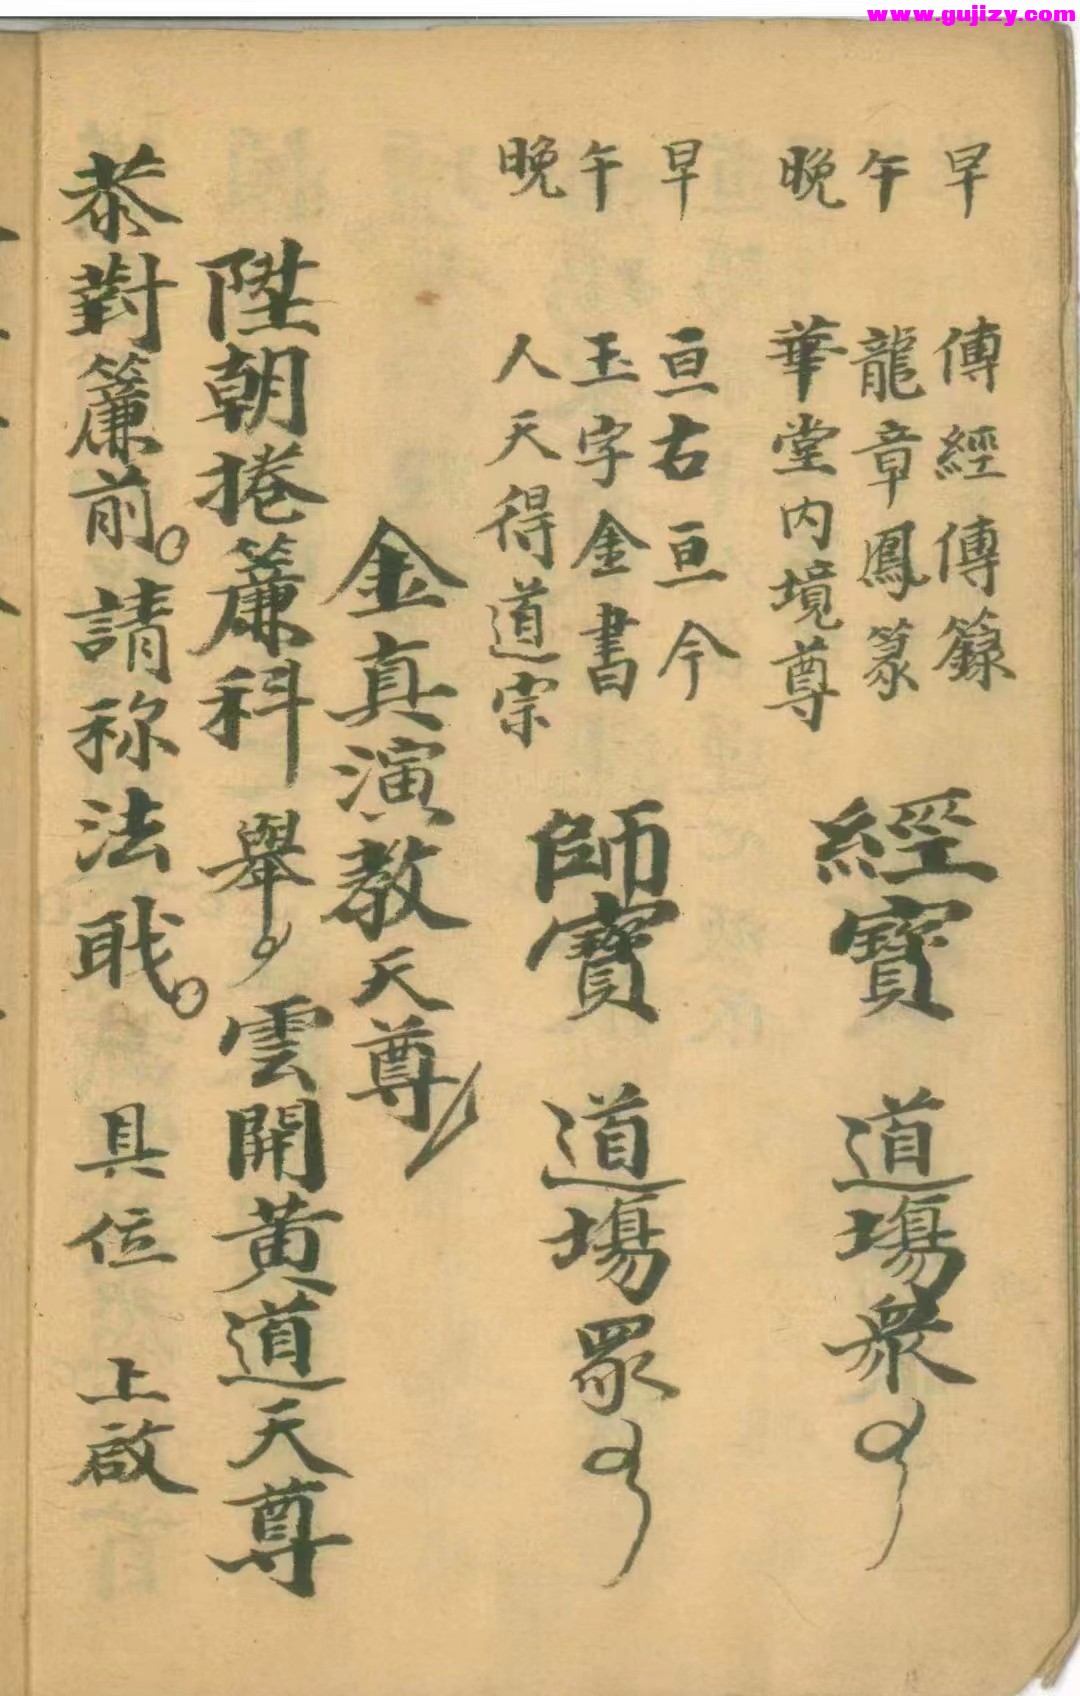 www.gujizy.com
早 傅經傅籙
午 龍章鳳篆
晚 華堂内境尊
經寶 道塲衆
早 亘古亘今
午 玉字金書
晚 人天得道宗
師寶 道塲眾
金真演教天尊
陞朝捲簾科 舉 雲開黄道天尊
恭對簾前。請称法戝。 具位 上啟